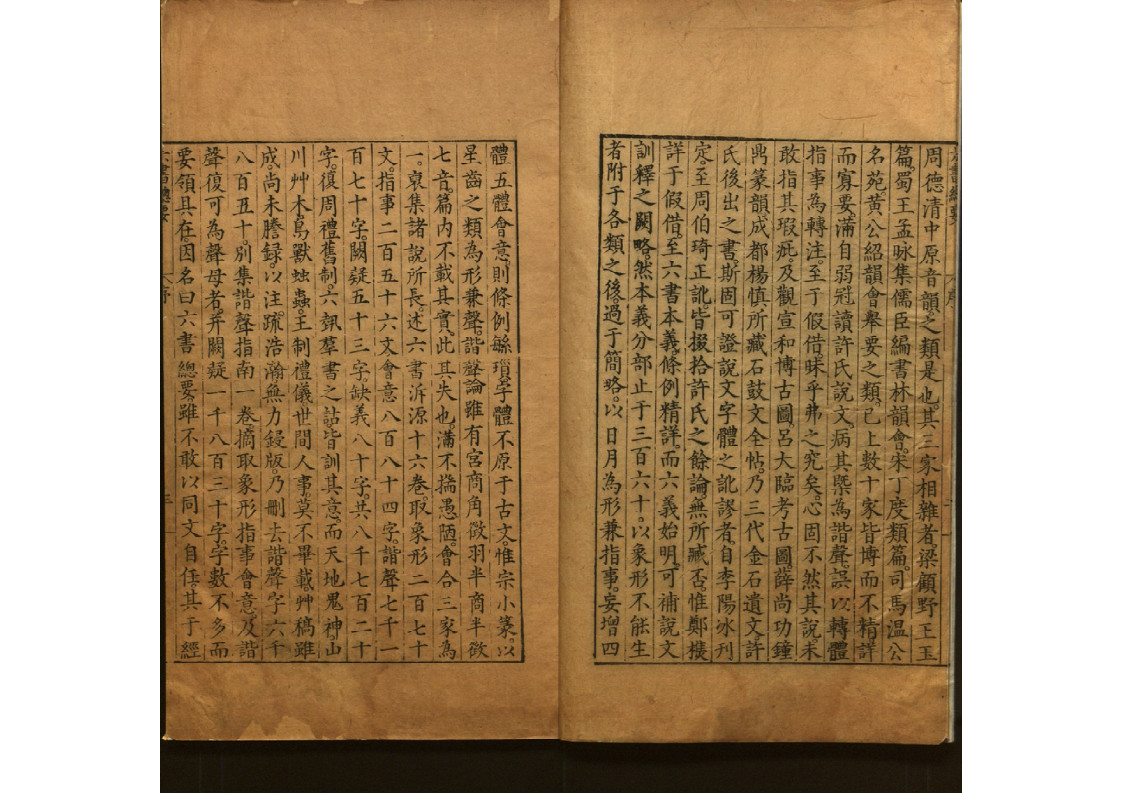 周德清中原音韻之類是也其三家相雜者梁顧野王玉
篇蜀王孟昹集儒臣編書林韻會宋丁度類篇司馬溫公
名苑黃公紹韻會舉要之類已上數十家皆博而不精詳
而寡要滿自弱冠讀許氏說文病其槩為諧聲誤以轉體
指事為轉注至于假借昧乎弗之究矣心固不然其說未
敢指其瑕疵及觀宣和博古圖呂大臨考古圖薛尚功鐘
鼎篆韻成都楊慎所藏石鼓文全帖乃三代金石遺文許
氏後出之書斯固可證說文字體之訛謬者自李陽冰刋
定至周伯琦正訛皆掇拾許氏之餘論無所臧否惟鄭樵
詳于假借至六書本義條例精詳而六義始明可補說文
訓釋之闕略然本義分部止于三百六十以象形不能生
者附于各類之後過于簡略以日月為形兼指事妄增四
體五體會意則條例緐瑣字體不原于古文惟宗小篆以
星齒之類為形兼聲諧聲論雖有宮商角徵羽半商半徵
七音篇內不載其實此其失也滿不揣愚陋會合三家為
一裒集諸說所長述六書泝源十六卷取象形二百七十
文指事二百五十六文會意八百八十四字諧聲七千一
百七十字闕疑五十三字缺義八十字共八千七百二十
字復周禮舊制六執羣書之詁皆訓其意而天地鬼神山
川艸木鳥獸䖵蟲王制禮儀世間人事莫不畢載艸稿雖
成尚未謄録以注䟽浩瀚無力鋟版乃刪去諧聲字六千
八百五十別集諧聲指南一卷摘取象形指事會意及諧
聲復可為聲母者并闕疑一千八百三十字字數不多而
要領具在因名曰六書總要雖不敢以同文自任其于經